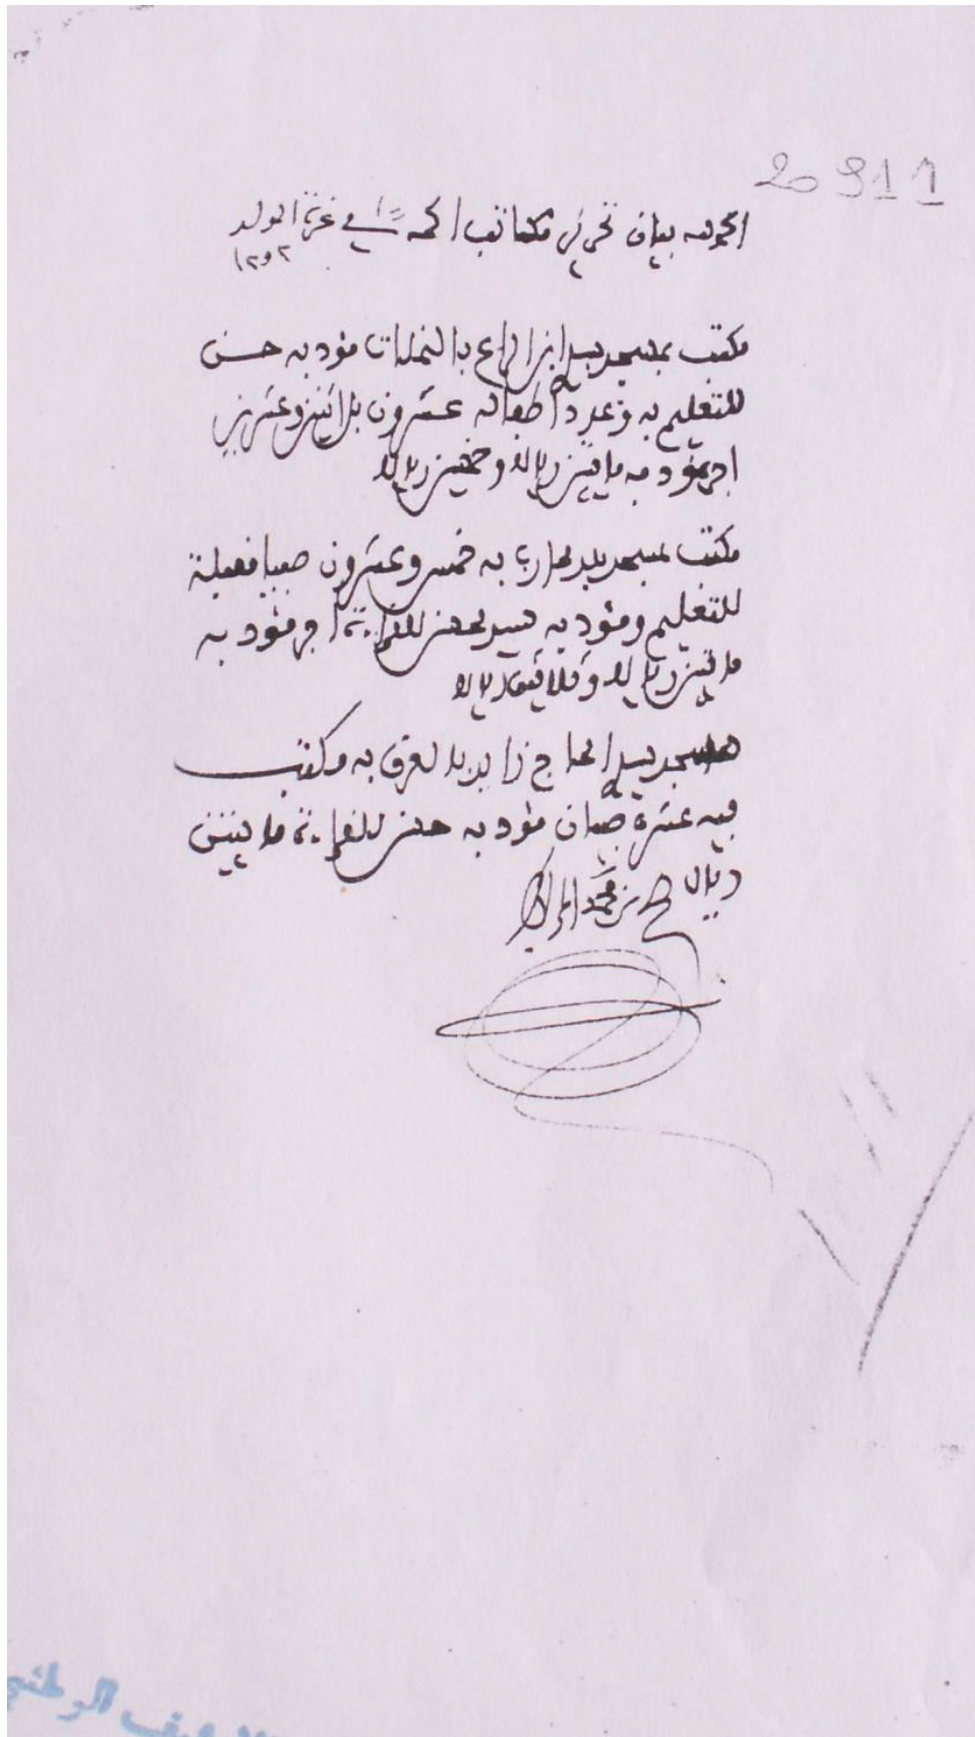 20911
الحمد لله بيان تحرير مكاتب الحمة في غرة المولد
١٢٩٢
مكتب بمسجد سيدي ابن الراع بالنملات مؤدبه حسن
للتعليم به وعدد أطفاله عشرون بل اثنين وعشرين
اجر مؤدبه مايتين ريالا وخمسين ريالا
مكتب بمسجد به خمس وعشرون صبيا
للتعليم ومؤدبه للقراءة اجر مؤدبه
مايتين ريالا وثلاثين ريالا
مسجد سيدي الحاج زايد به مكتب
فيه عشرة صبيان مؤدبه حسن للقراءة مايتين
ريال صح من محمد
الوطني